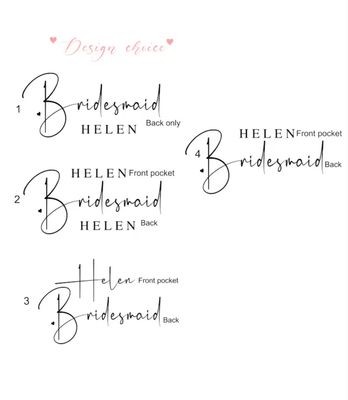 Design choice
1 Bridesmaid
HELEN Back only
2 HELEN Front pocket
Bridesmaid
HELEN Back
3 Helen Front pocket
Bridesmaid Back
4 HELEN Front pocket
Bridesmaid Back